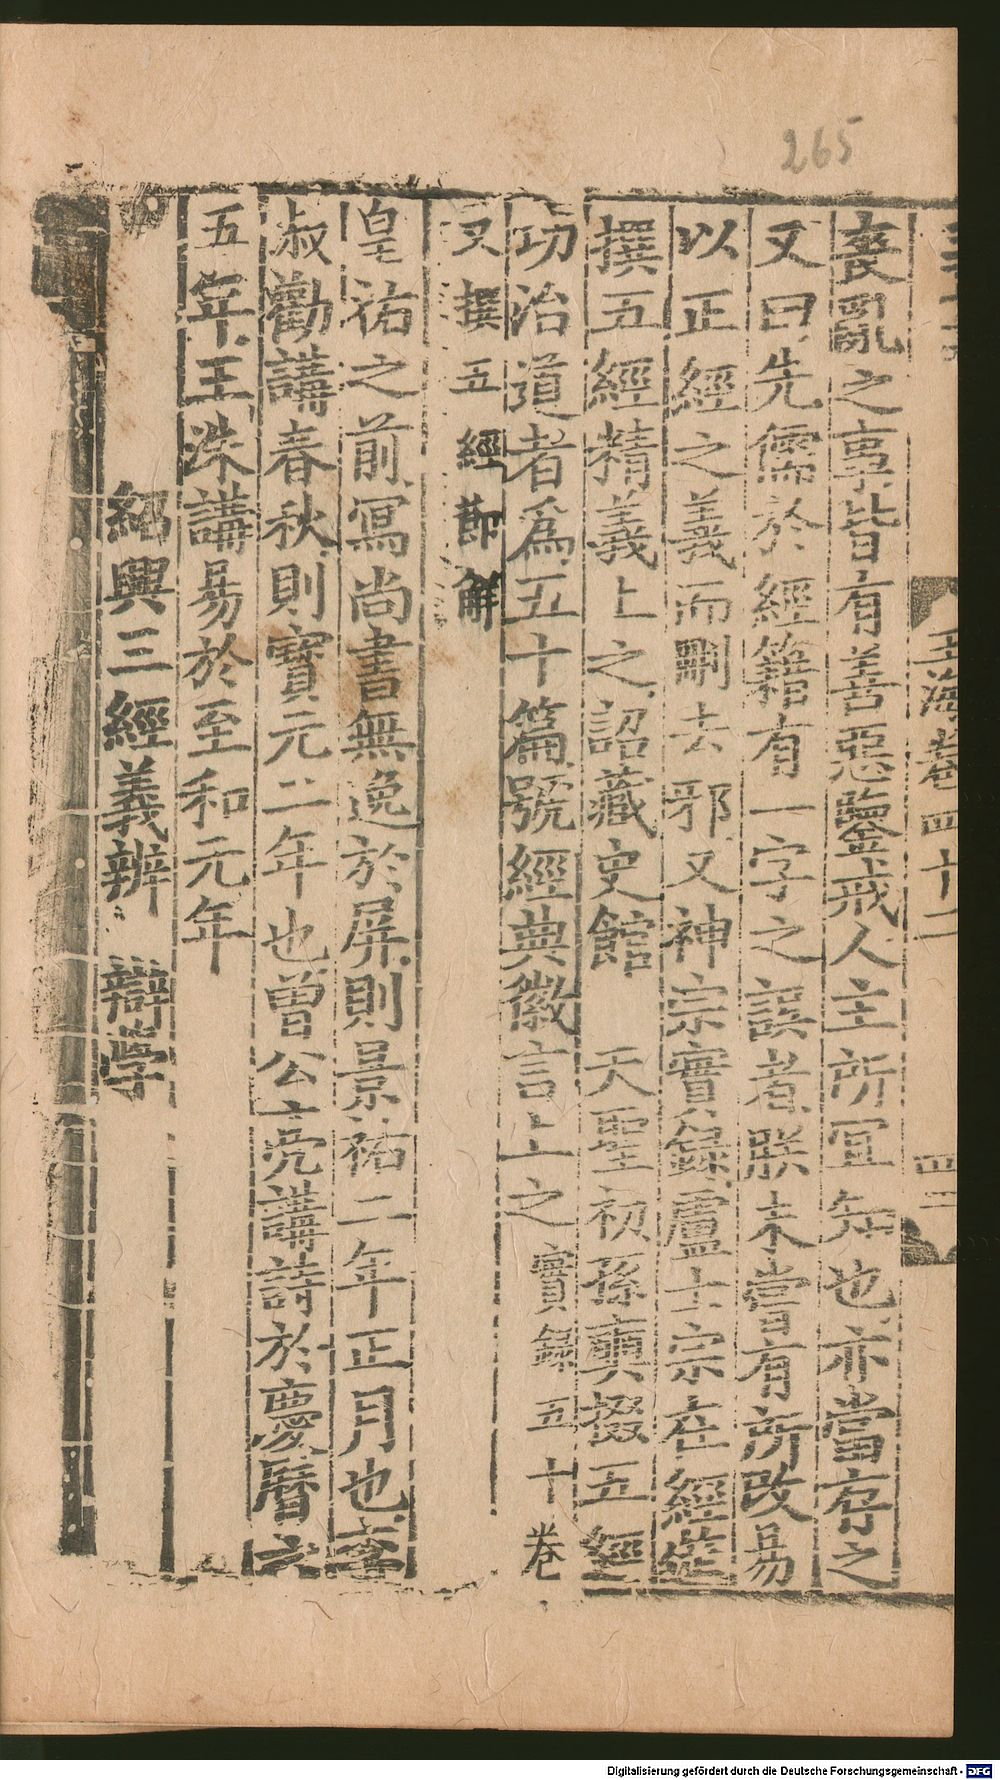 265
玉海卷四十二
喪亂之事皆有善惡鑒戒人主所宜知也亦當存之
又曰先儒於經籍有一字之誤者朕未嘗有所改易
以正經之義而刪去邪又神宗實錄盧士宗在經筵
撰五經精義上之詔藏史館 天聖初孫奭掇五經
功治道者爲五十篇號經典徽言上之實錄五十卷
又撰五經節解
皇祐之前寫尚書無逸於屏則景祐二年正月也李
淑勸講春秋則寶元二年也曾公亮講詩於慶曆六
五年王洙講易於至和元年
紹興三經義辨 辯學
Digitalisierung gefördert durch die Deutsche Forschungsgemeinschaft - DFG